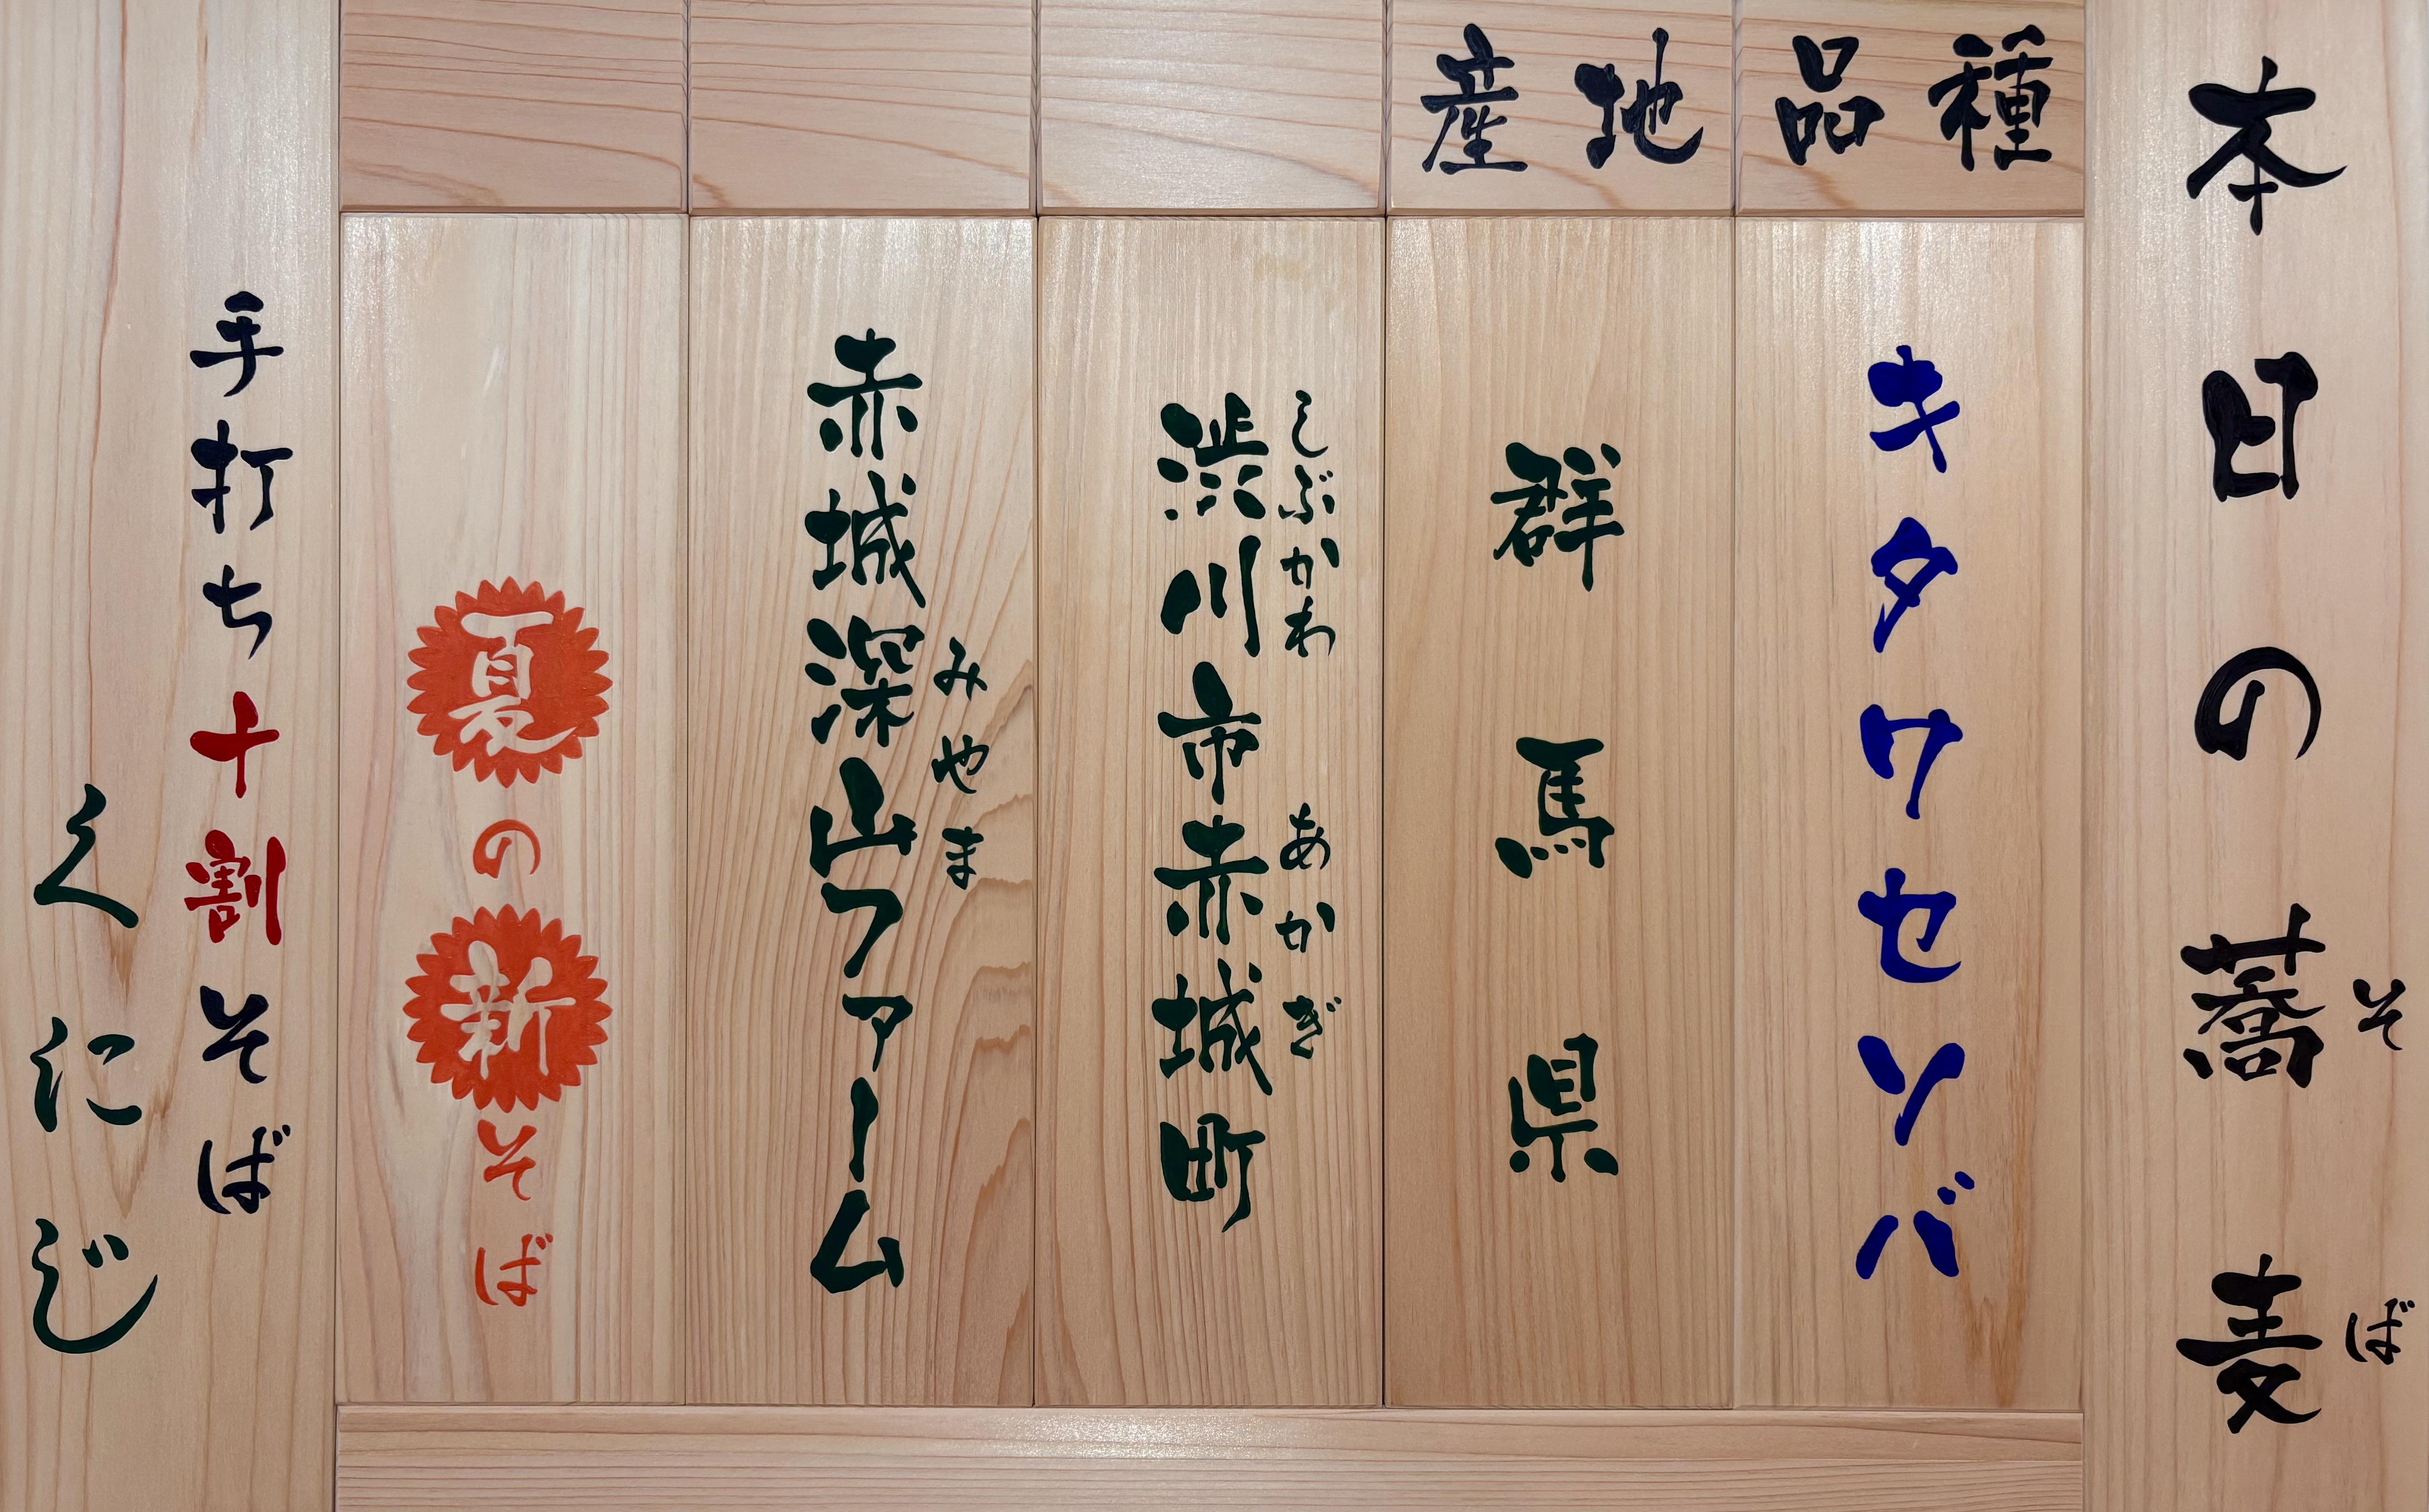 本日の蕎麦
そば
品種
キタワセソバ
産地
群馬県
渋川市赤城町
しぶかわ あかぎ
赤城深山ファーム
みやま
夏の新そば
手打ち十割そば
くにじ